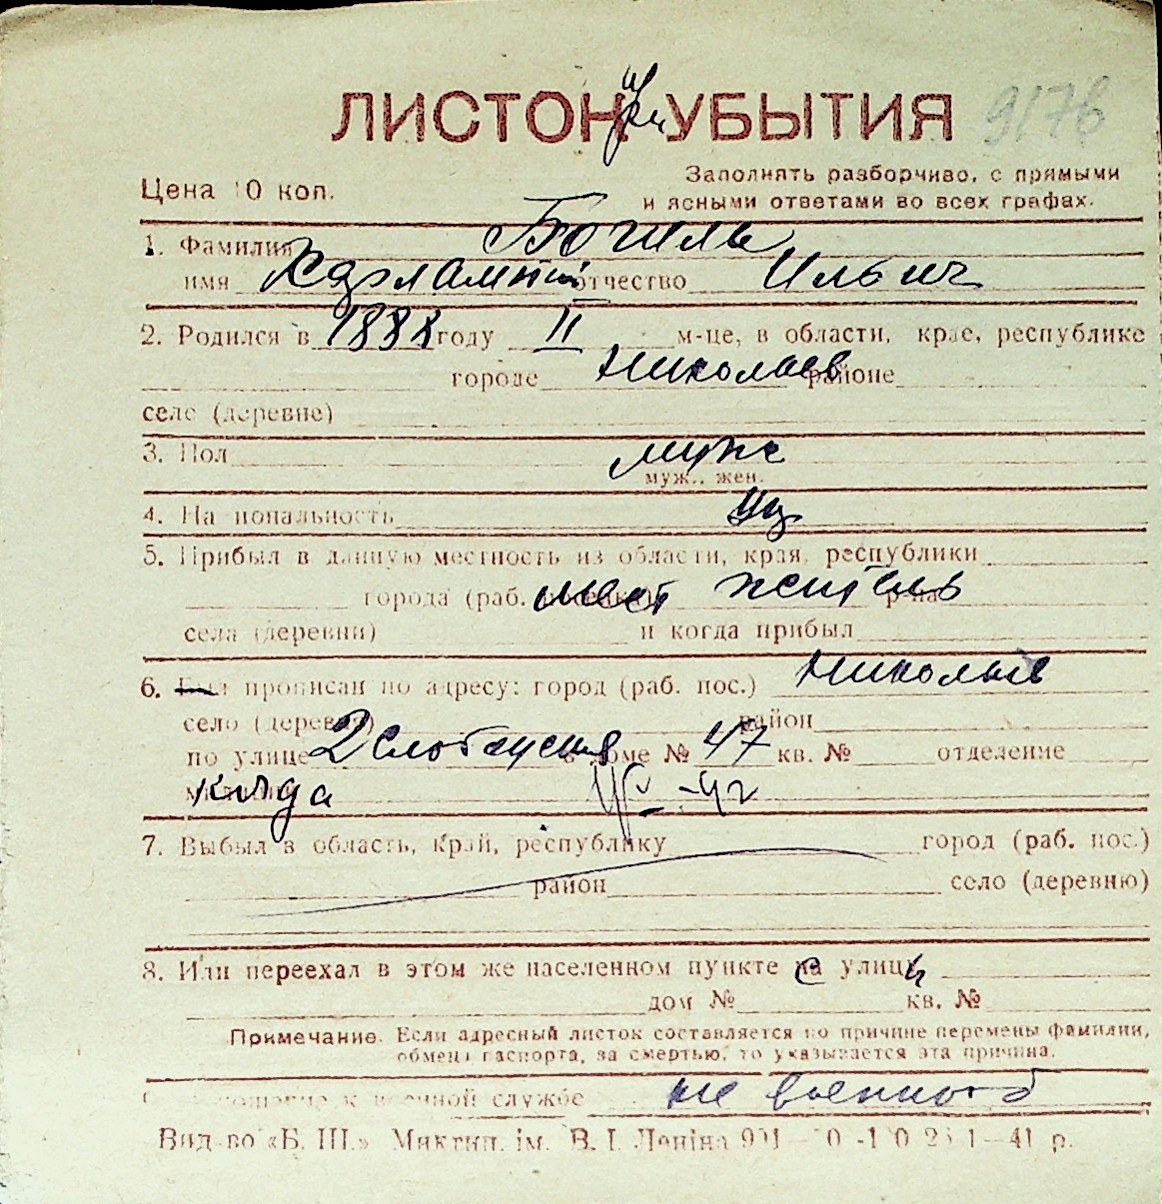 ЛИСТОК при УБЫТИЯ 9/76
Цена 10 коп.
Заполнять разборчиво, с прямыми
и ясными ответами во всех графах.
1. Фамилия Богиль
имя Харлампий отчество Ильич
2. Родился в 1888 году II м-це, в области, крае, республике
городе Николаев районе
селе (деревне)
3. Пол муж
муж., жен.
4. Национальность
5. Прибыл в данную местность из области, края, республики
города (раб. мест житель р-на
села (деревни) и когда прибыл
6. Был прописан по адресу: город (раб. пос.) Николаев
село (деревня) район
по улице 2 Слободская в доме № 47 кв. № отделение
милиции
7. Выбыл в область, край, республику город (раб. пос.)
район село (деревню)
8. Или переехал в этом же населенном пункте с улицы
дом № кв. №
Примечание. Если адресный листок составляется по причине перемены фамилии,
обмена паспорта, за смертью, то указывается эта причина.
к военной службе не военнооб
Вид-во «Б. Ш.» Миктип. ім. В. І. Леніна 41 р.